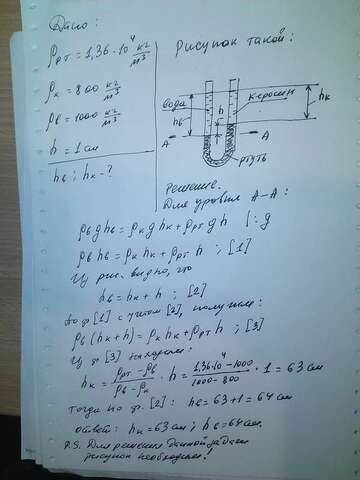 Дано:
ρрт = 1,36 · 10⁴ кг/м³
ρк = 800 кг/м³
ρв = 1000 кг/м³
h = 1 см
hв ; hк - ?
Рисунок такой:
вода
hв
h
керосин
hк
A
A
ртуть
Решение.
Для уровня A-A:
ρв g hв = ρк g hк + ρрт g h |: g
ρв hв = ρк hк + ρрт h ; [1]
Из рис. видно, что
hв = hк + h ; [2]
по ф [1] с учётом [2], получим:
ρв (hк + h) = ρк hк + ρрт h ; [3]
Из ф [3] находим:
hк = (ρрт - ρв)/(ρв - ρк) · h = (1,36·10⁴ - 1000)/(1000 - 800) · 1 = 63 см
тогда по ф. [2]: hв = 63 + 1 = 64 см
ответ: hк = 63 см ; hв = 64 см.
P.S. Для решения данной задачи
рисунок необходим!